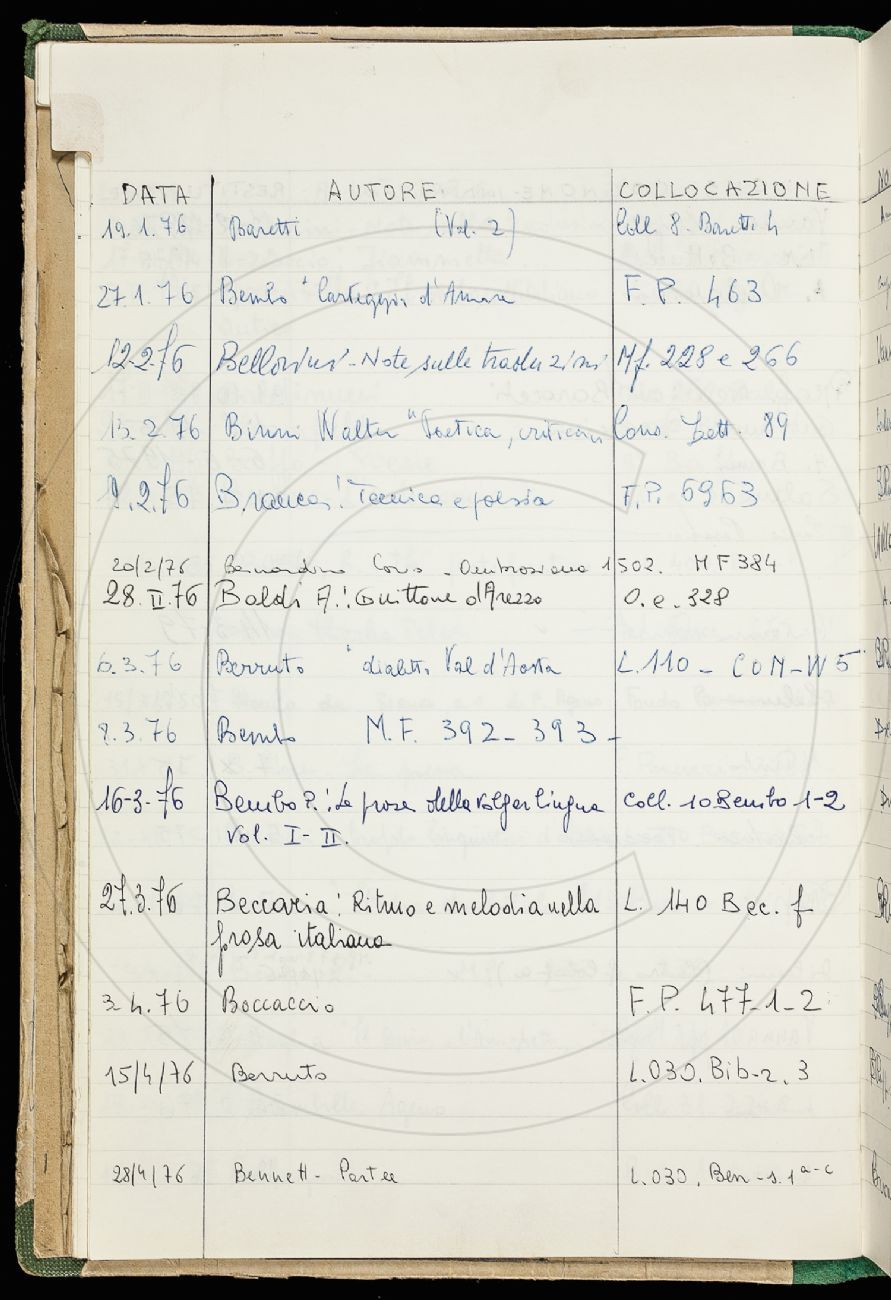 DATA AUTORE COLLOCAZIONE
19.1.76 Baretti (Vol. 2) Coll. 8. Baretti 4
27.1.76 Bembo "Carteggio d'Amore F. P. 463
12.2.76 Bellorini - Note sulle traduzioni Mf. 228 e 266
13.2.76 Binni Walter "Poetica, critica Cons. Lett. 89
9.2.76 Branca: Tecnica e poesia F.P. 6963
20/2/76 Bernardino Ambrosiana 1502. MF 384
28.II.76 Baldi A.: Guittone d'Arezzo O.e.328
6.3.76 Berruto "dialetti Val d'Aosta L.110 - CON-W5
9.3.76 Bembo M.F. 392-393-
16-3-76 Bembo P.: Le prose della volgar lingua Coll. 10 Bembo 1-2
Vol. I-II.
27.3.76 Beccaria: Ritmo e melodia nella L. 140 Bec. f
prosa italiana
3-4.76 Boccaccio F.P. 477-1-2
15/4/76 Berruto L.030. Bib-2. 3
28/4/76 Bennett - Partee L.030. Ben-s.1a-c